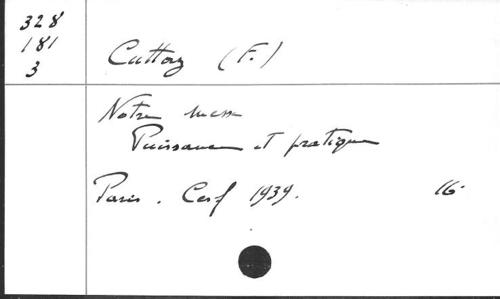 328
181
3
Cuttaz (F.)
Notre messe
Puissance et pratique
Paris. Cerf 1939. 16°